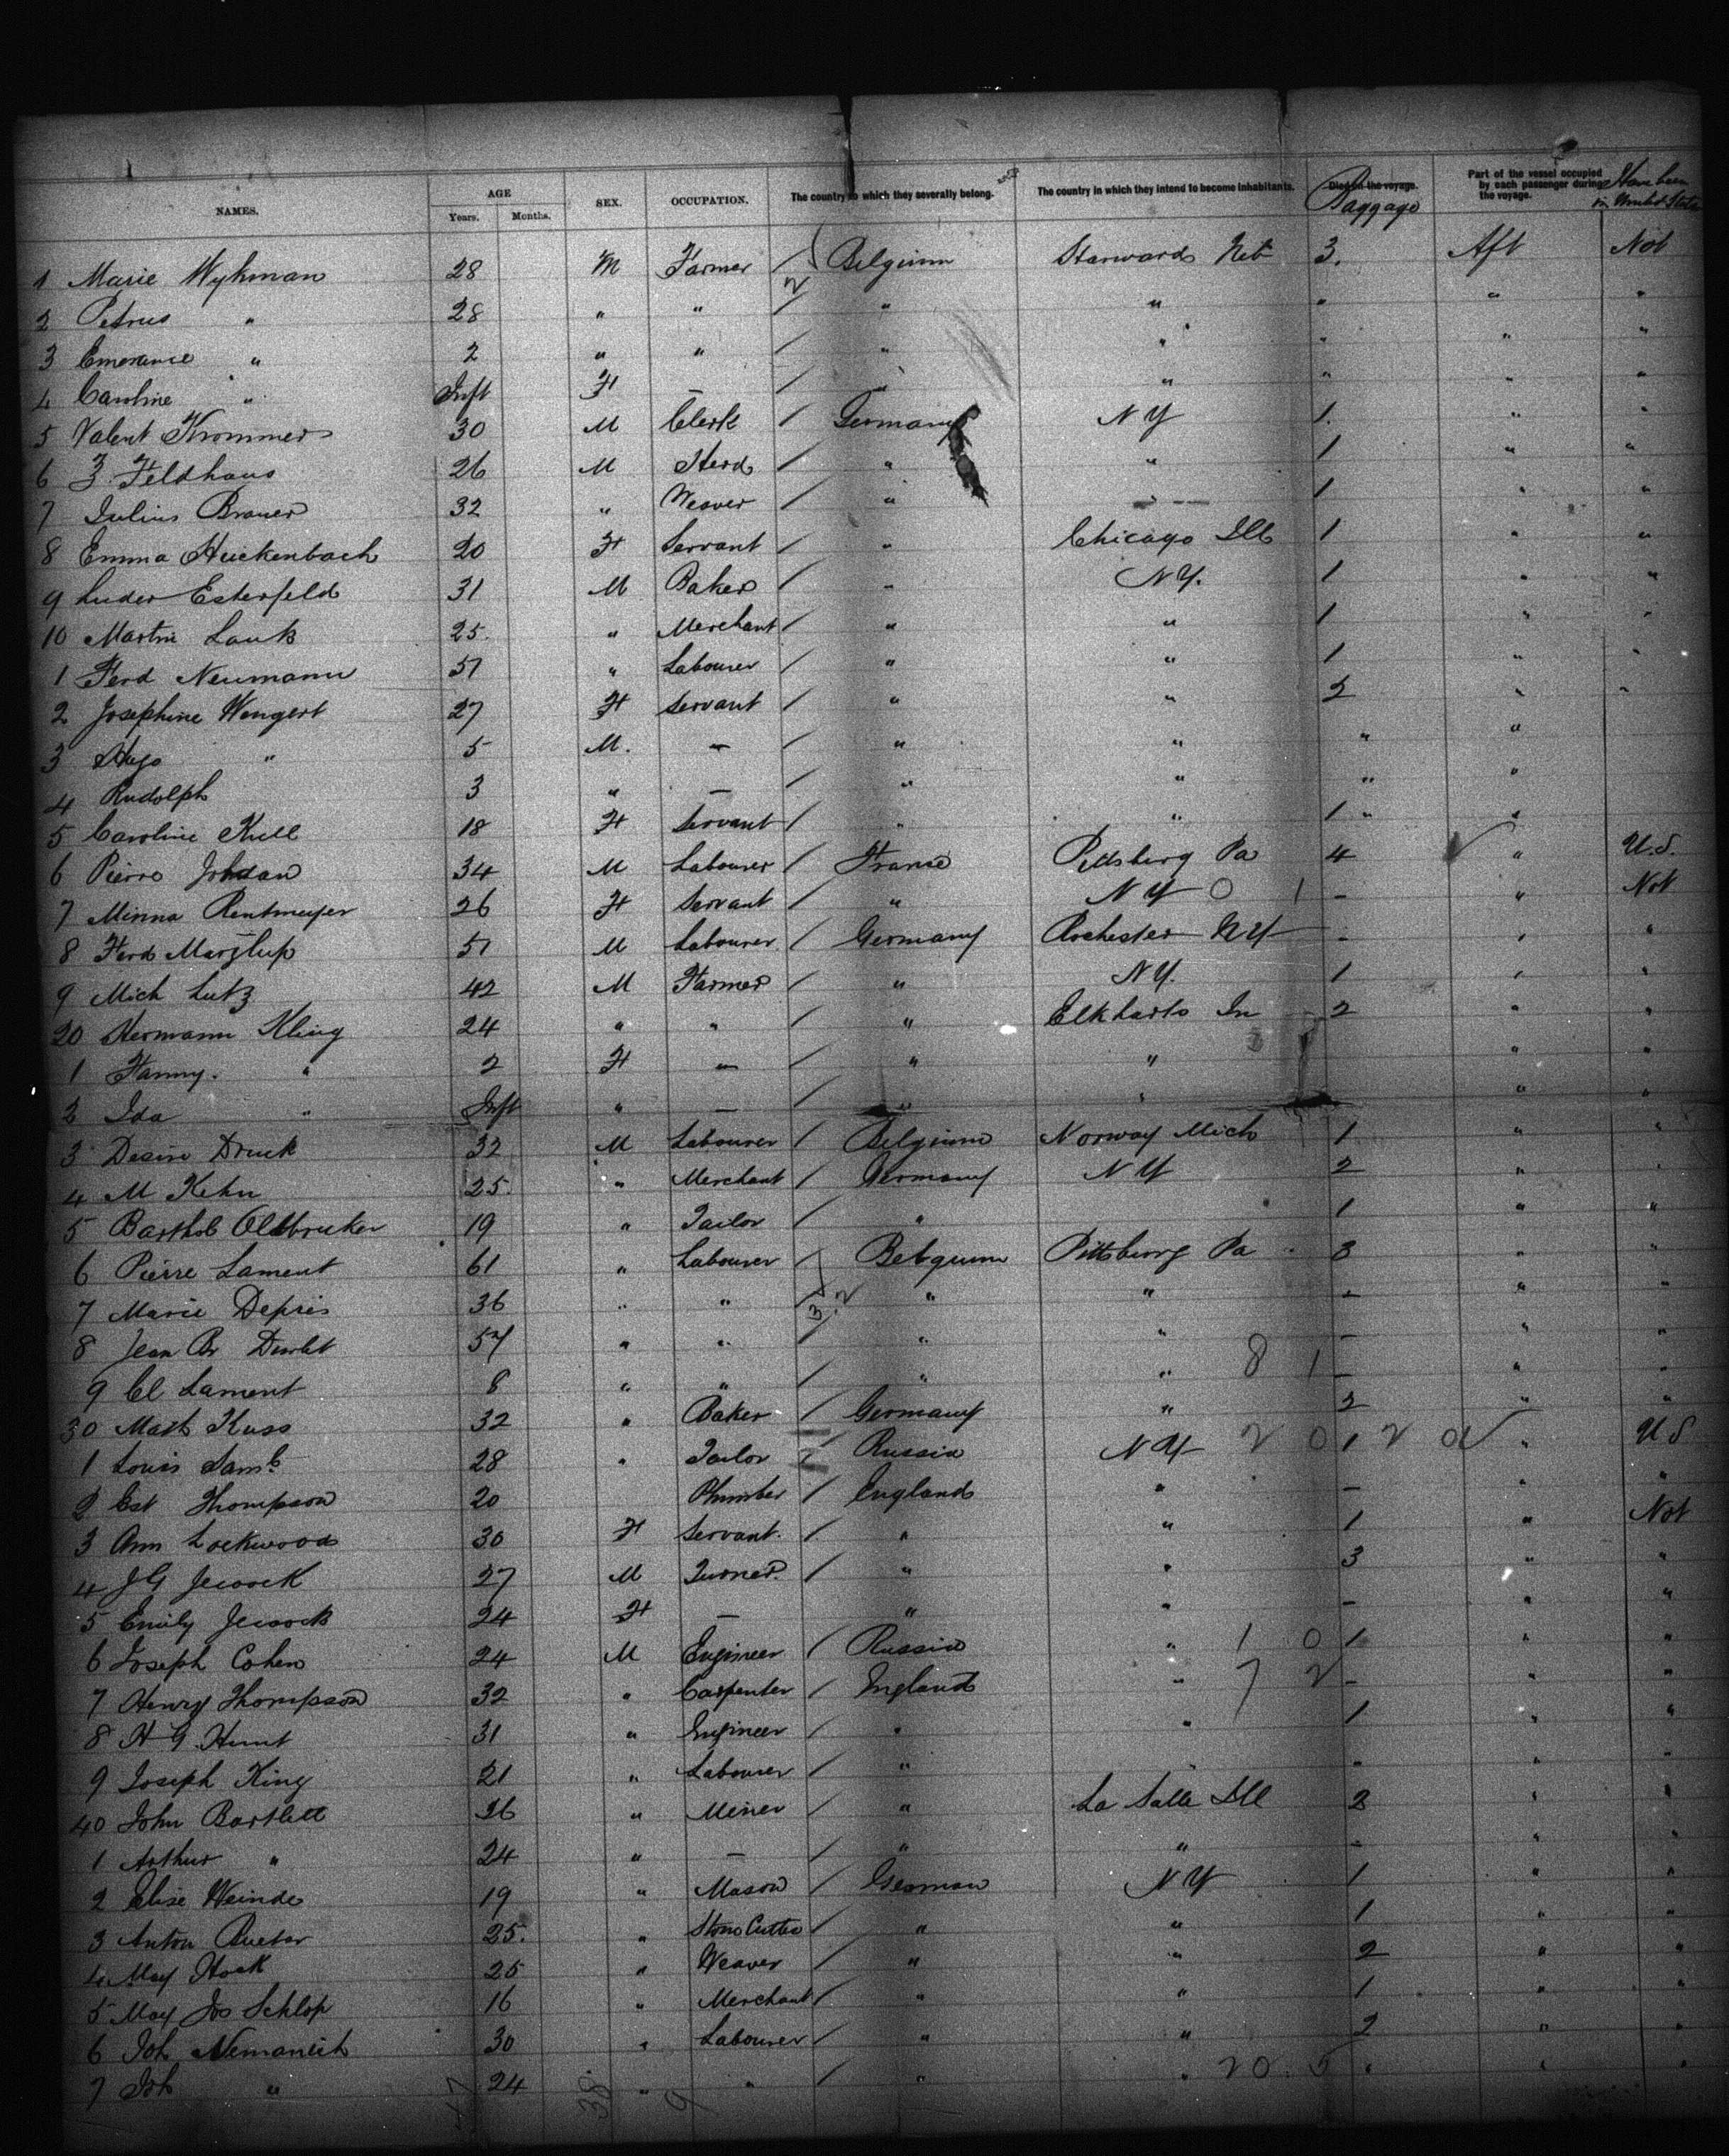 NAMES. AGE Years. Months. SEX. OCCUPATION. The country to which they severally belong. The country in which they intend to become inhabitants. Died on the voyage. Baggage Part of the vessel occupied by each passenger during the voyage. Have been in United States
1 Marie Wykman 28 M Farmer / Belgium Neb 3. Aft Not
2 Petrus " 28 " " / " " " " "
3 Emerence " 2 " " / " " " " "
4 Caroline " Inft F / " " " " "
5 Valent Krommer 30 M Clerk / Germany N Y 1. " "
6 Feldhaus 26 M / " " 1 " "
7 Julius Brauer 32 " Weaver / " " 1 " "
8 Emma Huckenbach 20 F Servant / " Chicago Ill 1 " "
9 Luder Esterfeld 31 M Baker / " N Y. 1 " "
10 Martin Lauk 25. " Merchant / " " 1 " "
1 Ferd Neumann 51 " Labourer / " " 1 " "
2 Josephine Wengert 27 F Servant / " " 2 " "
3 Hugo " 5 M. – / " " " "
4 Rudolph 3 " – / " " " "
5 Caroline Krell 18 F Servant / " " 1 " "
6 Pierre Jordan 34 M Labourer / France Pittsburg Pa 4 " U.S.
7 Minna Rentmeyer 26 F Servant / " N Y 0 1 – " Not
8 Ferd Marzlup 51 M Labourer / Germany Rochester N Y – " "
9 Mich Lutz 42 M Farmer / " N Y. 1 " "
20 Hermann Kling 24 " " / " Elkharts In 2 " "
1 Fanny. " 2 F – / " " " "
2 Ida " Inft " – / " " " "
3 Desire Druck 32 M Labourer / Belgium Norway Mich 1 " "
4 M Kehn 25. " Merchant / Germany N Y 2 " "
5 Barthol 19 " Tailor / " 1 " "
6 Pierre Lament 61 " Labourer / Belgium Pittsburg Pa 3 " "
7 Marie Depris 36 " " / " " – " "
8 Jean Bt 57 " " / " " – " "
9 Cl Lament 8 " " / " " 8 1 – " "
30 Math Kuss 32 " Baker / Germany " 2 " "
1 Louis 28 " Tailor / Russia N Y 2 0 1 2 0 " U S
2 Thompson 20 Plumber / England " – " "
3 Ann Lockwood 30 F Servant. / " " 1 " Not
4 J G Jecock 27 M Turner. / " " 3 " "
5 Emily Jecock 24 F – " " – " "
6 Joseph Cohen 24 M Engineer / Russia " 1 0 1 " "
7 Henry Thompson 32 " Carpenter / England " 7 2 – " "
8 H G. Hunt 31 " Engineer / " " 1 " "
9 Joseph King 21 " Labourer / " – " "
40 John Bartlett 36 " Miner / " La Salle Ill 2 " "
1 Arthur " 24 " – / " " – " "
2 Elise Weinde 19 " Mason / German N Y 1 " "
3 Anton Rueter 25. " Stone Cutter / " " 1 " "
4 May Hock 25 " Weaver / " " 2 " "
5 May Jos Schlop 16 " Merchant / " " 1 " "
6 Joh Nemanich 30 " Labourer / " " 2 " "
7 Joh " 24 " " / " " 20 5 " " "
47 38 9